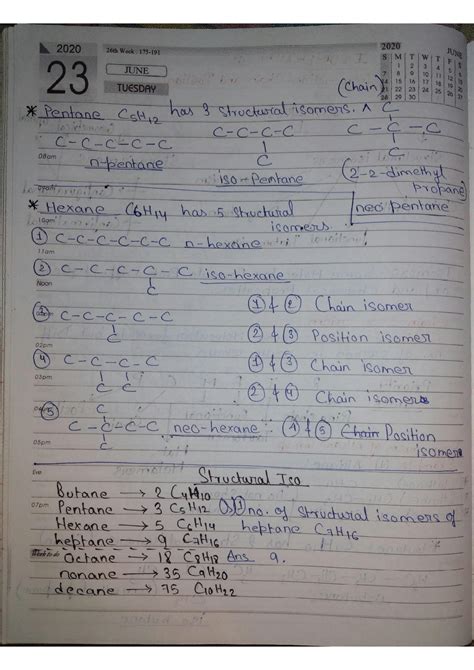 2020
26th Week : 175-191
23
JUNE
TUESDAY
2020 JUNE
S M T W T F S
(Chain)
* Pentane C5H12 has 3 structural isomers. ^
C-C-C-C-C
n-pentane
C-C-C-C
C
iso-Pentane
C
C-C-C
C
(2-2-dimethyl propane)
neo pentane
08am
* Hexane C6H14 has 5 structural isomers
10am
① C-C-C-C-C-C n-hexane
11am
② C-C-C-C-C iso-hexane
C
Noon
① & ② Chain isomer
③ C-C-C-C-C
C
② & ③ Position isomer
02pm
④ C-C-C-C
C C
① & ③ Chain isomer
03pm
② & ④ Chain isomers
C
⑤ C-C-C-C neo-hexane
C
④ & ⑤ Chain Position isomer
05pm
Eve
Structural Iso
Butane → 2 C4H10
07pm
Pentane → 3 C5H12 Q.① no. of structural isomers of
Hexane → 5 C6H14 heptane C7H16
heptane → 9 C7H16
Octane → 18 C8H18 Ans 9.
nonane → 35 C9H20
decane → 75 C10H22